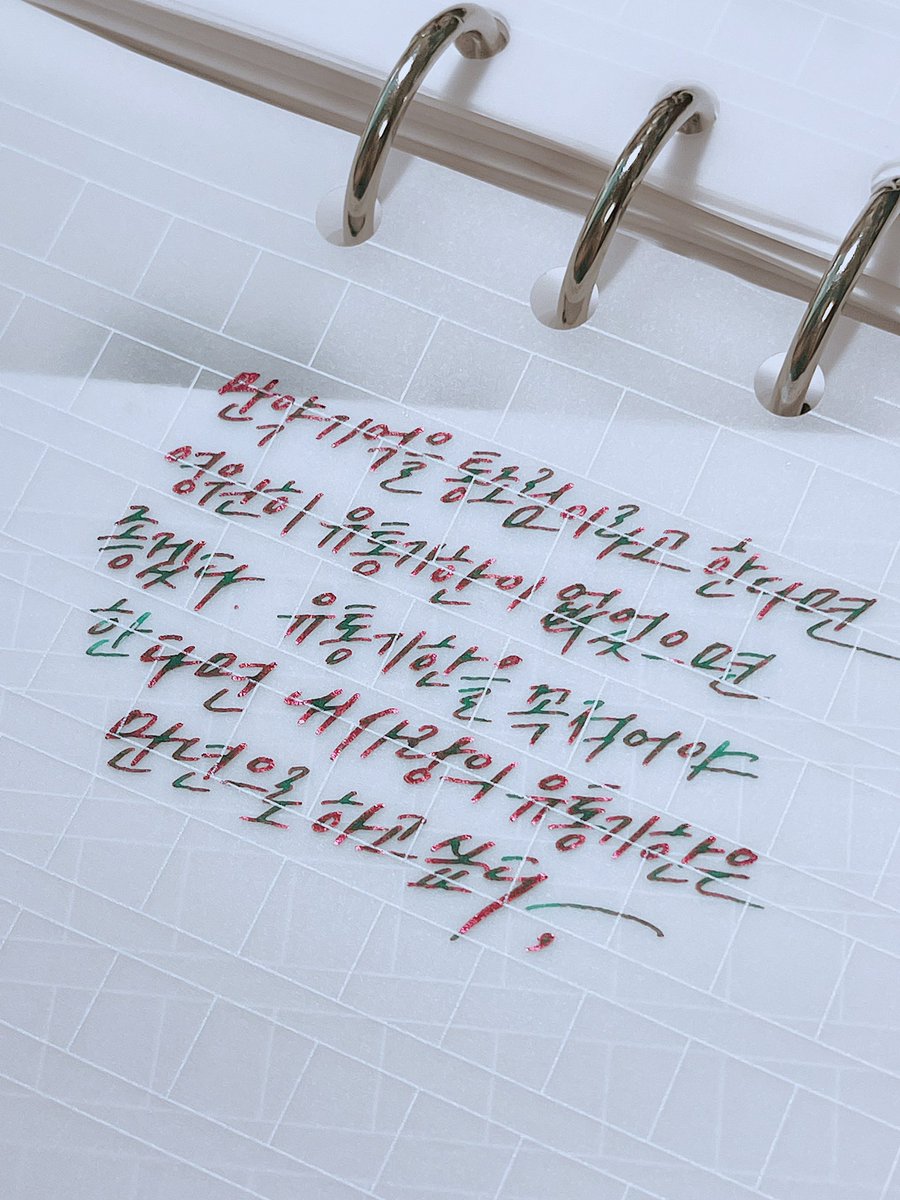 만약 기억을 통조림이라고 한다면
영원히 유통기한이 없었으면
좋겠다. 유통기한을 꼭 적어야
한다면 내 사랑의 유통기한은
만년으로 하고 싶다.